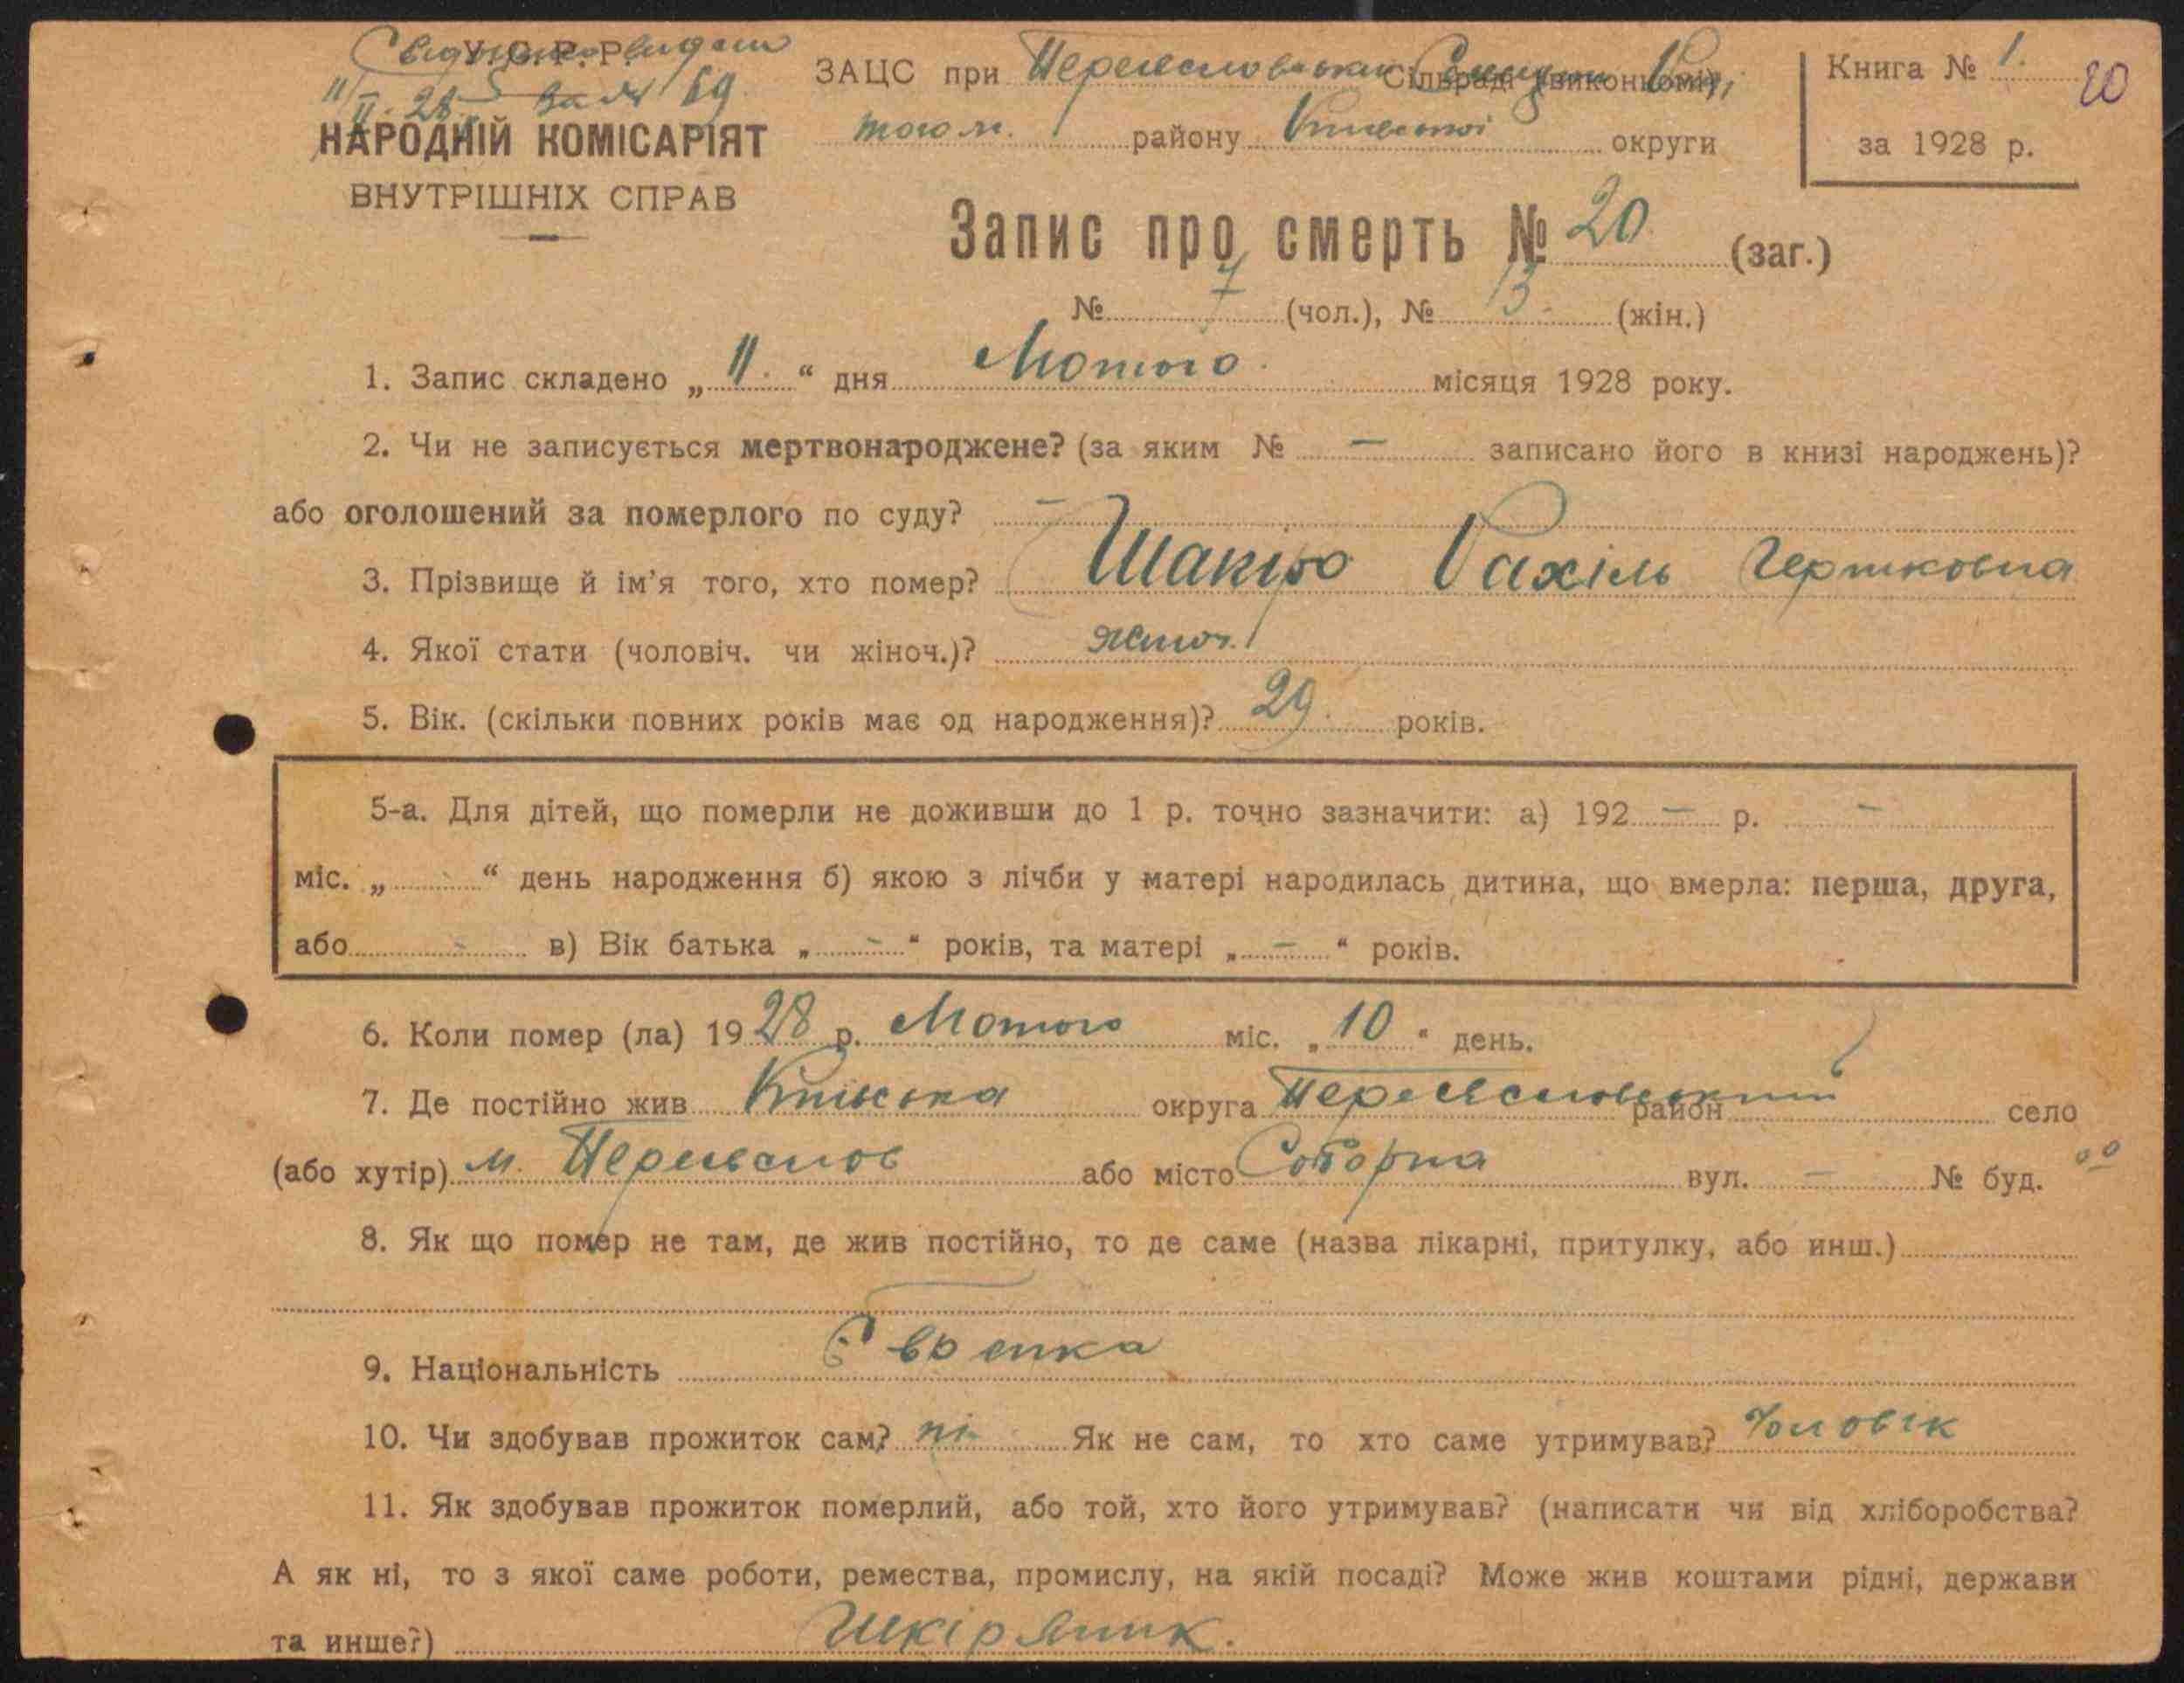 Свідоцтво видано
У. С. Р. Р.
11/II-28 р. за № 69
НАРОДНІЙ КОМІСАРІЯТ
ВНУТРІШНІХ СПРАВ
ЗАЦС при Переяславськім Сільраді (виконкомі)
того ж району Київської округи
Книга № 1.
20
за 1928 р.
Запис про смерть № 20 (заг.)
№ 7 (чол.), № 13. (жін.)
1. Запис складено „ 11. “ дня Лютого місяця 1928 року.
2. Чи не записується мертвонароджене? (за яким № — записано його в книзі народжень)?
або оголошений за померлого по суду? —
3. Прізвище й ім'я того, хто помер? Шапіро Рахіль Гершковна
4. Якої стати (чоловіч. чи жіноч.)? жіноч.
5. Вік. (скільки повних років має од народження)? 29. років.
5-а. Для дітей, що померли не доживши до 1 р. точно зазначити: а) 192 — р. —
міс. „ - “ день народження б) якою з лічби у матері народилась дитина, що вмерла: перша, друга,
або - в) Вік батька „ - “ років, та матері „ — “ років.
6. Коли помер (ла) 19 28 р. Лютого міс. „ 10 “ день.
7. Де постійно жив Київська округа Переяславський район село
(або хутір) м. Переяслов або місто Соборна вул. — № буд.
8. Як що помер не там, де жив постійно, то де саме (назва лікарні, притулку, або инш.)
9. Національність Єврейка
10. Чи здобував прожиток сам? ні Як не сам, то хто саме утримував? Чоловік
11. Як здобував прожиток померлий, або той, хто його утримував? (написати чи від хліборобства?
А як ні, то з якої саме роботи, ремества, промислу, на якій посаді? Може жив коштами рідні, держави
та инше?) Шкіряник.